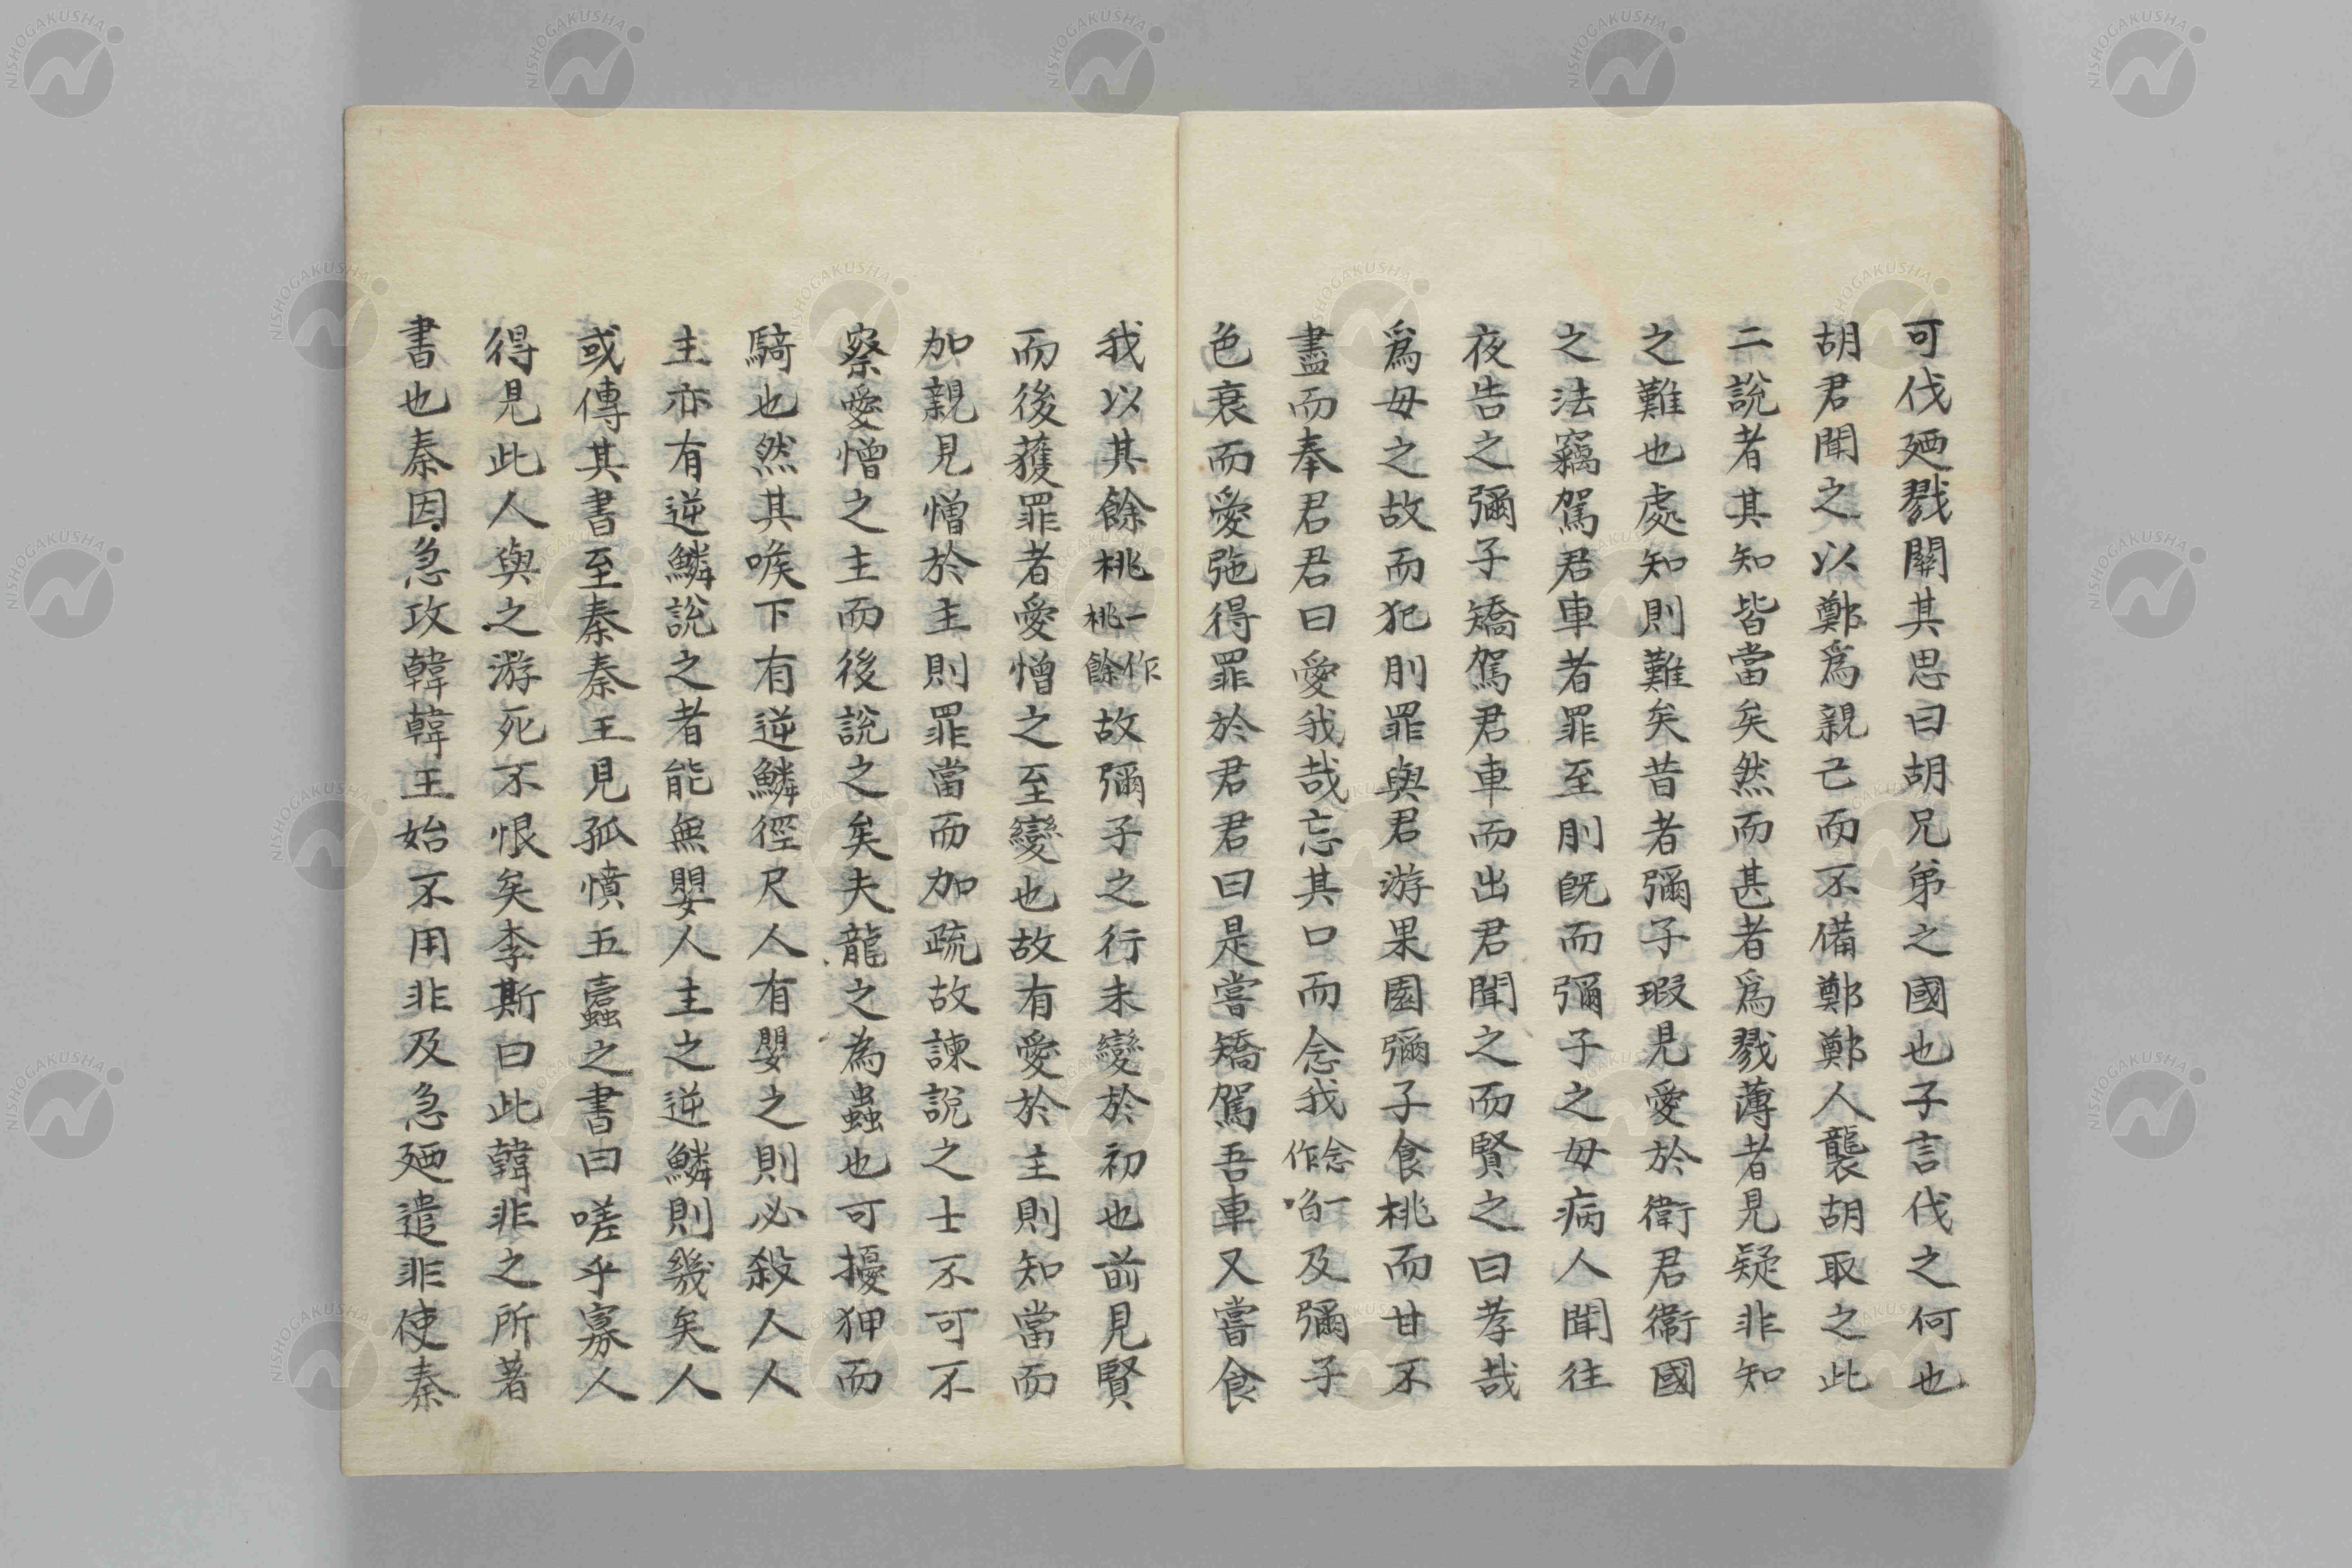 可伐廼戮關其思曰胡兄弟之國也子言伐之何也
胡君聞之以鄭爲親己而不備鄭鄭人襲胡取之此
二說者其知皆當矣然而甚者爲戮薄者見疑非知
之難也處知則難矣昔者彌子瑕見愛於衛君衞國
之法竊駕君車者罪至刖旣而彌子之毋病人聞往
夜告之彌子矯駕君車而出君聞之而賢之曰孝哉
爲毋之故而犯刖罪與君游果園彌子食桃而甘不
盡而奉君君曰愛我哉忘其口而念我念一作啗及彌子
色衰而愛弛得罪於君君曰是嘗矯駕吾車又嘗食
我以其餘桃一作桃餘故彌子之行未變於初也前見賢
而後獲罪者愛憎之至變也故有愛於主則知當而
加親見憎於主則罪當而加疏故諫說之士不可不
察愛憎之主而後說之矣夫龍之為蟲也可擾狎而
騎也然其喉下有逆鱗徑尺人有嬰之則必殺人人
主亦有逆鱗說之者能無嬰人主之逆鱗則幾矣人
或傳其書至秦秦王見孤憤五蠹之書曰嗟乎寡人
得見此人與之游死不恨矣李斯曰此韓非之所著
書也秦因急攻韓韓王始不用非及急廼遣非使秦